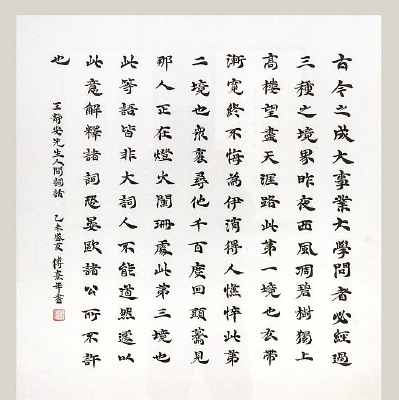 古今之成大事業大學問者必經過
三種之境界昨夜西風凋碧樹獨上
高樓望盡天涯路此第一境也衣帶
漸寬終不悔為伊消得人憔悴此第
二境也衆裏尋他千百度回頭驀見
那人正在燈火闌珊處此第三境也
此等語皆非大詞人不能道然遽以
此意解釋諸詞恐晏歐諸公所不許
也
王靜安先生人間詞話 乙未盛夏 傅年書